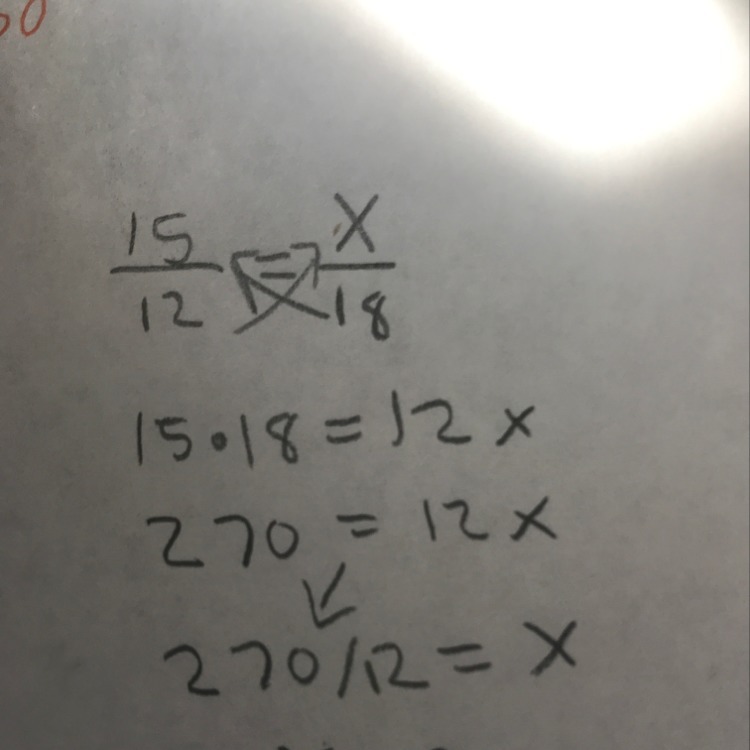 15/12 = X/18
15·18 = 12x
270 = 12x
270/12 = x